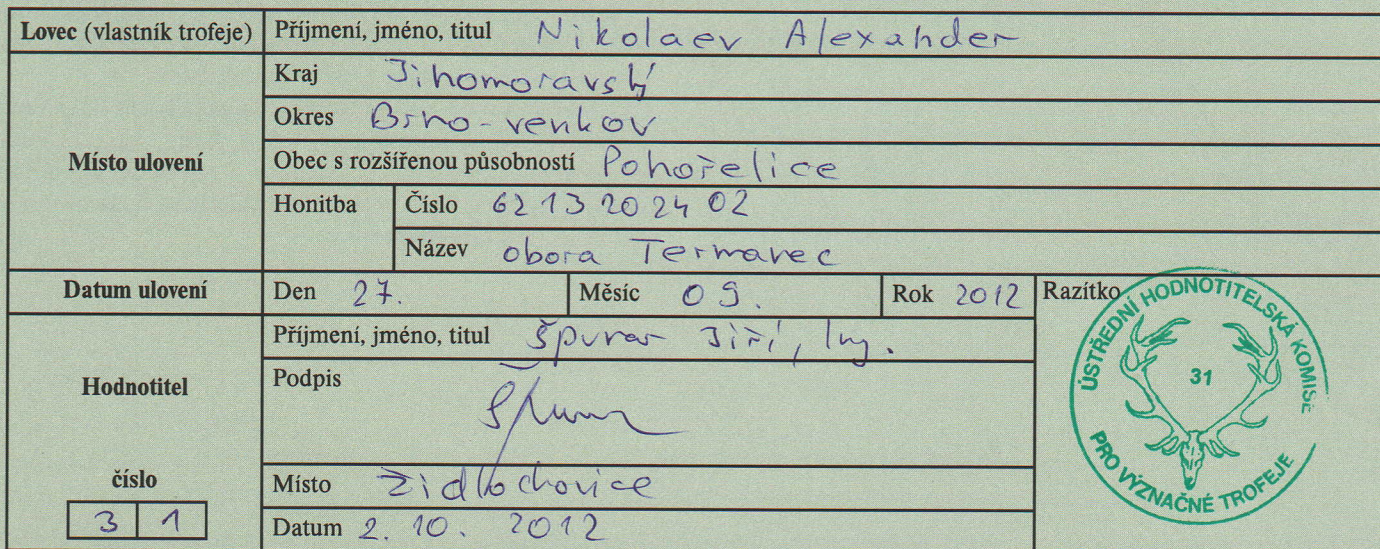 Lovec (vlastník trofeje) Příjmení, jméno, titul Nikolaev Alexander
Místo ulovení
Kraj Jihomoravský
Okres Brno-venkov
Obec s rozšířenou působností Pohořelice
Honitba Číslo 62 13 20 24 02
Název obora Termanec
Datum ulovení Den 27. Měsíc 09. Rok 2012 Razítko
Hodnotitel
Příjmení, jméno, titul Špurar Jiří, Ing.
Podpis
číslo 3 1
Místo Židlochovice
Datum 2. 10. 2012
ÚSTŘEDNÍ HODNOTITELSKÁ KOMISE
31
PRO VÝZNAČNÉ TROFEJE